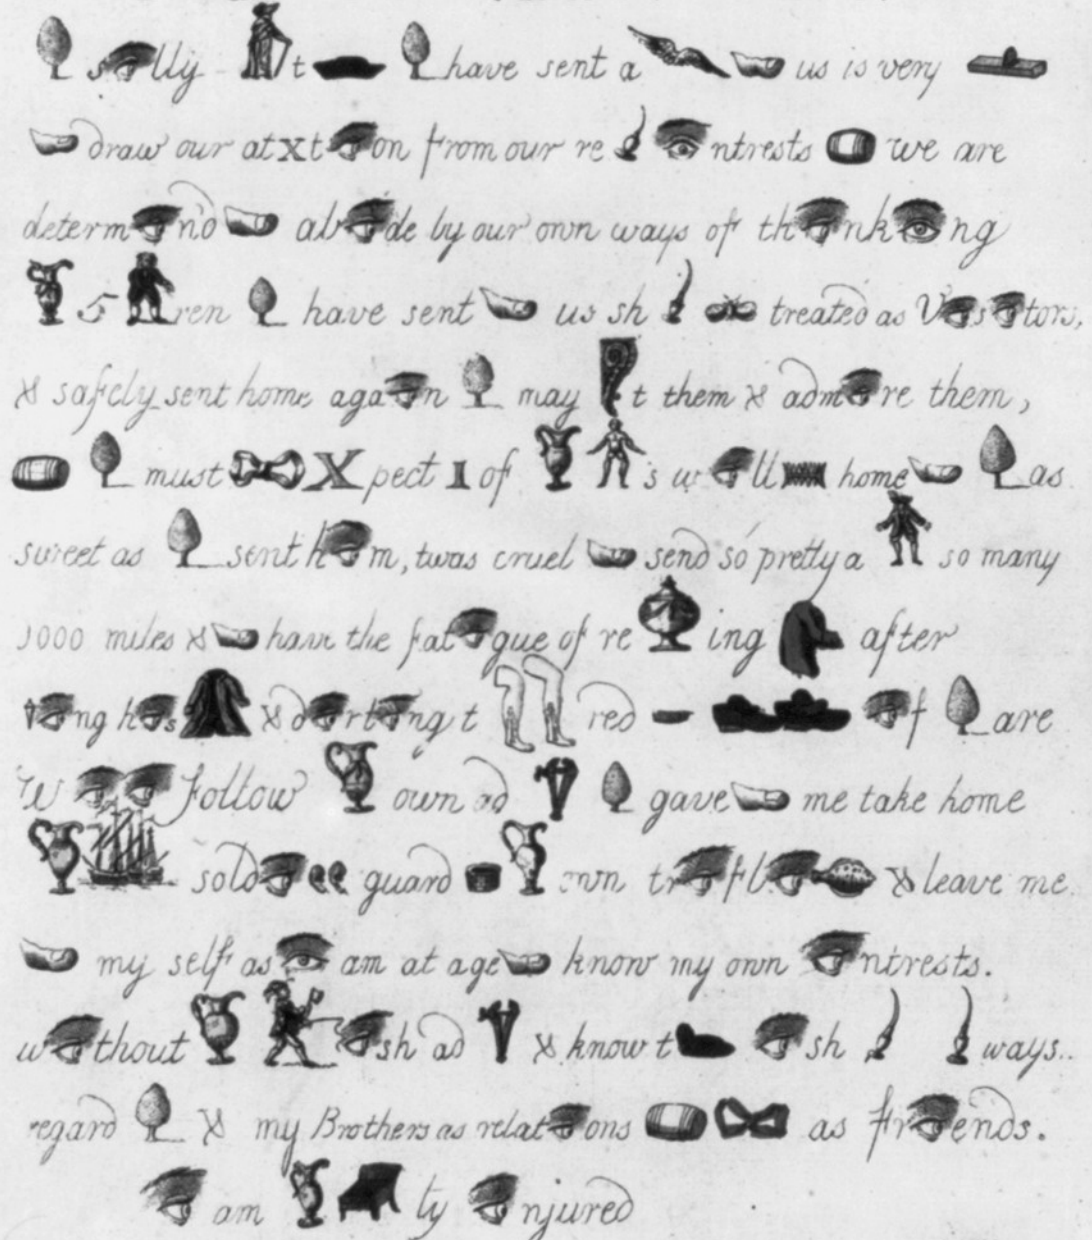 s lly t have sent a us is very
draw our at x t on from our re ntrests we are
determ nd al de by our own ways of th nk ng
5 ren have sent us sh treated as V s tors,
& safely sent home aga n may t them & adm re them,
must X pect 1 of s w ll home as
sweet as sent h m, twas cruel send so pretty a so many
1000 miles & have the fat gue of re ing after
ng h s & d rt ng t red f are
W follow own ad gave me take home
sold guard own tr fl & leave me
my self as am at age know my own ntrests.
w thout sh ad & know t sh ways..
regard & my Brothers as relat ons as fr ends.
am ty njured